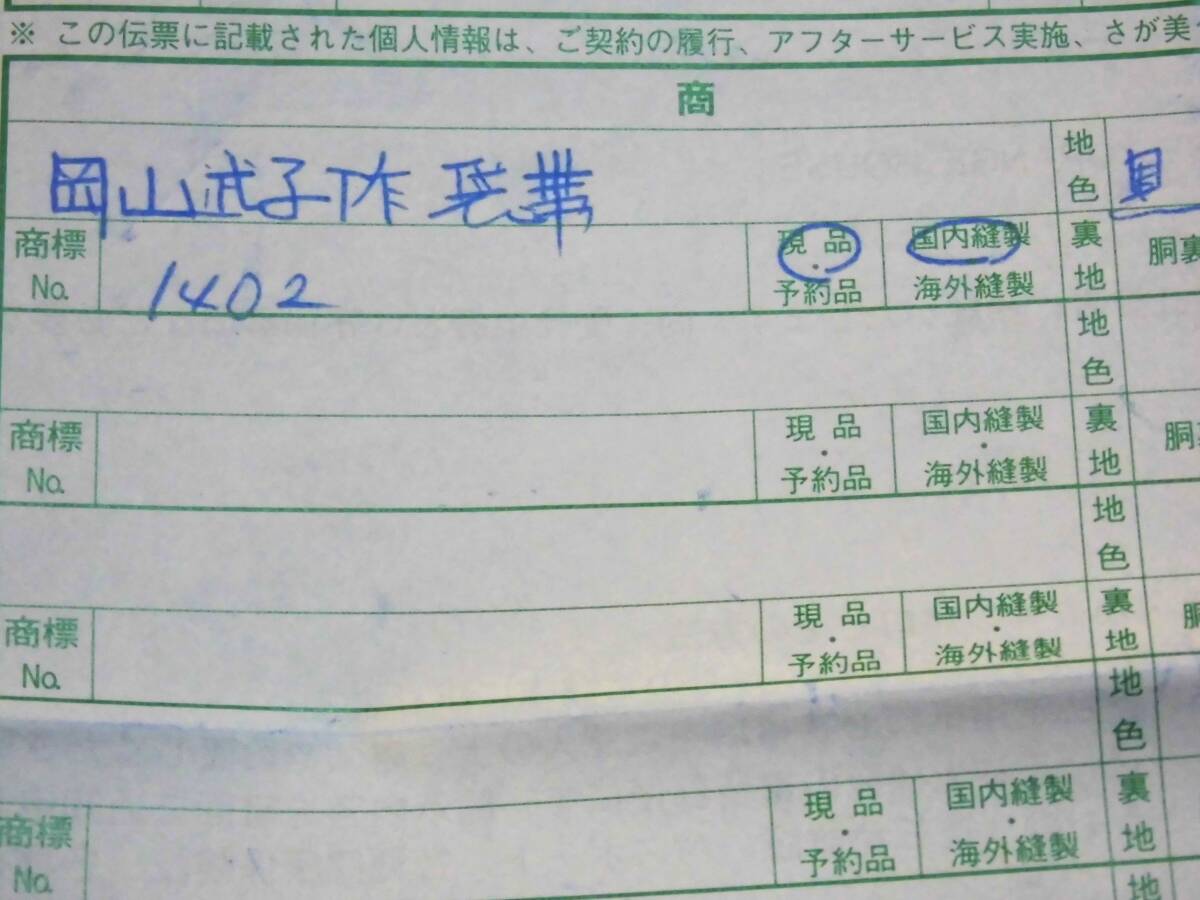 ※ この伝票に記載された個人情報は、ご契約の履行、アフターサービス実施、さが美
商
岡山武子作 地色
商標No. 1402 現品・予約品 国内縫製 海外縫製 裏地 胴裏
地色
商標No. 現品・予約品 国内縫製・海外縫製 裏地 胴裏
地色
商標No. 現品・予約品 国内縫製・海外縫製 裏地 胴
地色
商標No. 現品・予約品 国内縫製・海外縫製 裏地
地